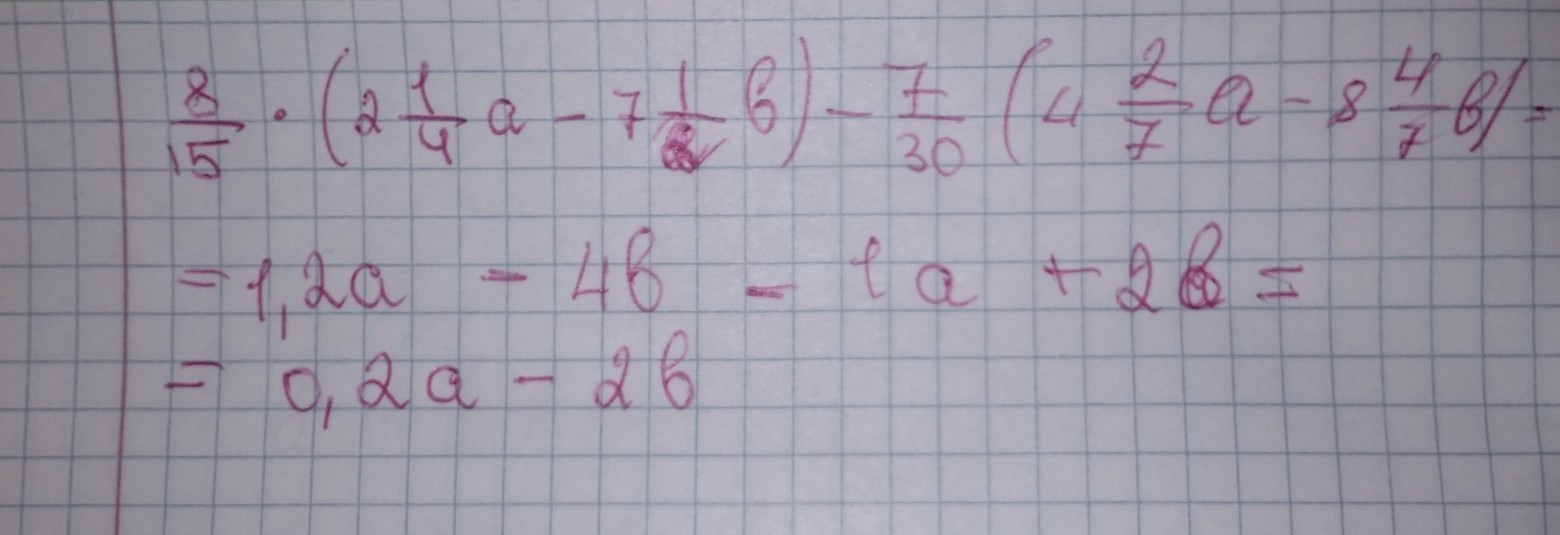 8/15 · (2 1/4 а - 7 1/2 в) - 7/30 (4 2/7 а - 8 4/7 в) =
= 1,2а - 4в - 1а + 2в =
= 0,2а - 2в